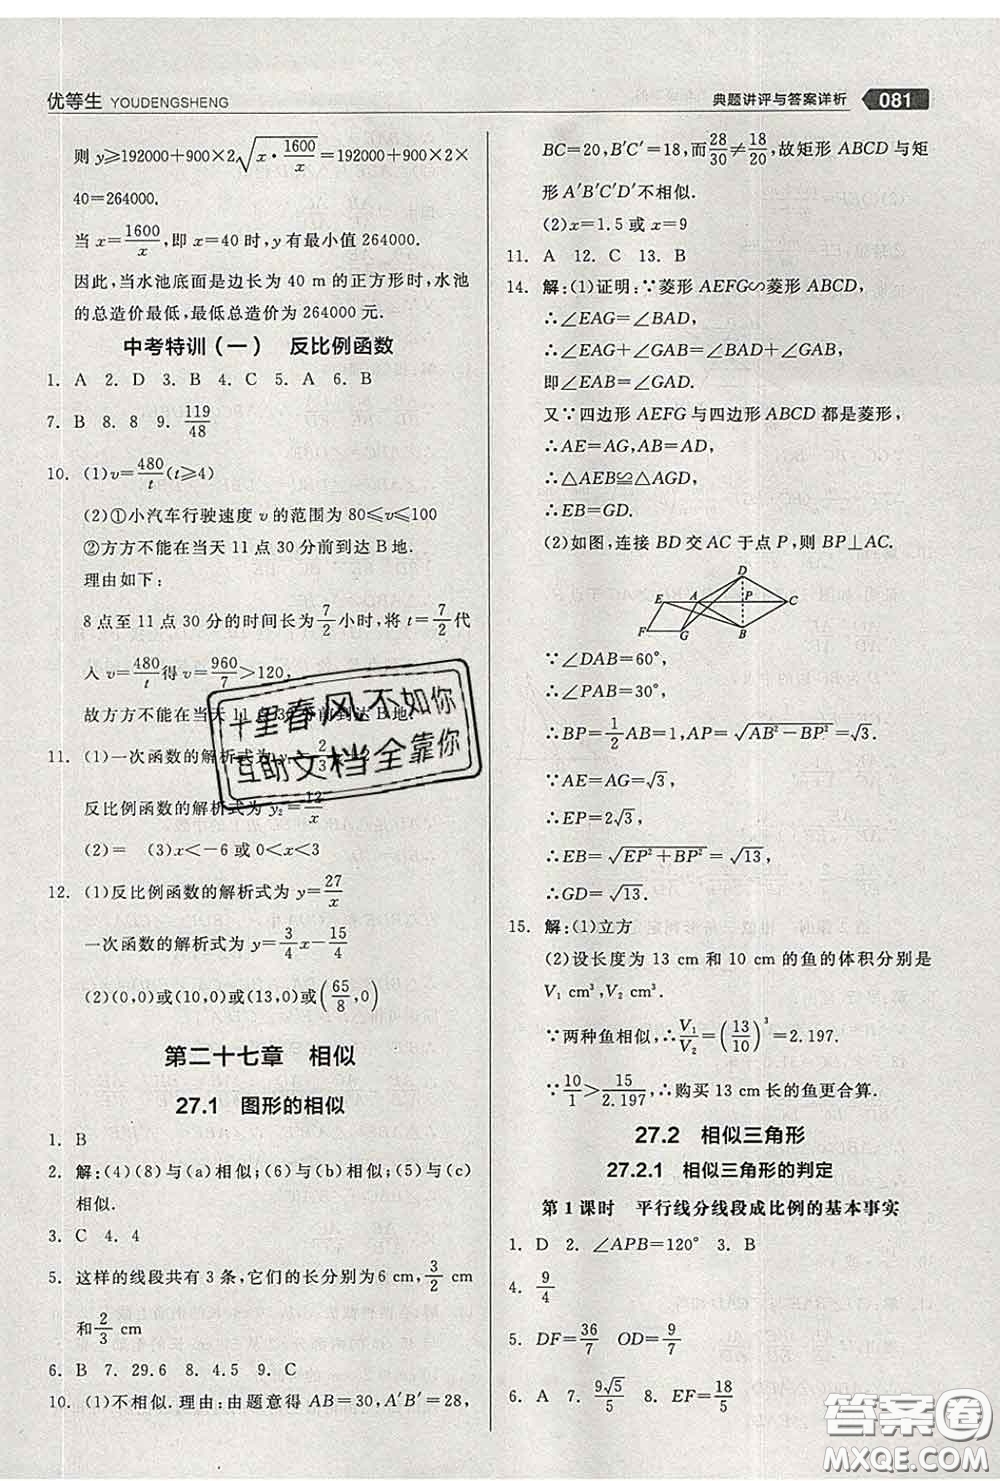 优等生 YOUDENGSHENG
典题讲评与答案详析 081
则 y≥192000+900×2√(x·1600/x)=192000+900×2×
40=264000.
当 x=1600/x,即 x=40 时,y 有最小值 264000.
因此,当水池底面是边长为 40 m 的正方形时,水池
的总造价最低,最低总造价为 264000 元.
中考特训(一) 反比例函数
1. A 2. D 3. B 4. C 5. A 6. B
7. B 8. 8 9. 119/48
10. (1)v=480/t(t≥4)
(2)①小汽车行驶速度 v 的范围为 80≤v≤100
②方方不能在当天 11 点 30 分前到达 B 地.
理由如下:
8 点至 11 点 30 分的时间长为 7/2 小时,将 t=7/2 代
入 v=480/t 得 v=960/7>120,
故方方不能在当天 11 点 30 分前到达 B 地.
11. (1)一次函数的解析式为 y
反比例函数的解析式为 y₂=12/x
(2)= (3)x<-6 或 0<x<3
12. (1)反比例函数的解析式为 y=27/x
一次函数的解析式为 y=3/4 x-15/4
(2)(0,0)或(10,0)或(13,0)或(65/8,0)
第二十七章 相似
27.1 图形的相似
1. B
2. 解:(4)(8)与(a)相似;(6)与(b)相似;(5)与(c)
相似.
3. C 4. 4
5. 这样的线段共有 3 条,它们的长分别为6 cm,3/2 cm
和 2/3 cm
6. B 7. 29.6 8. 4.5 9. C
10. (1)不相似.理由:由题意得 AB=30,A′B′=28,
BC=20,B′C′=18,而28/30≠18/20,故矩形 ABCD 与矩
形 A′B′C′D′不相似.
(2)x=1.5 或 x=9
11. A 12. C 13. B
14. 解:(1)证明:∵菱形 AEFG∽菱形 ABCD,
∴∠EAG=∠BAD,
∴∠EAG+∠GAB=∠BAD+∠GAB,
即∠EAB=∠GAD.
又∵四边形 AEFG 与四边形 ABCD 都是菱形,
∴AE=AG,AB=AD,
∴△AEB≌△AGD.
∴EB=GD.
(2)如图,连接 BD 交 AC 于点 P,则 BP⊥AC.
D
E A P C
F G B
∵∠DAB=60°,
∴∠PAB=30°,
∴BP=1/2 AB=1,AP=√(AB²-BP²)=√3.
∵AE=AG=√3,
∴EP=2√3,
∴EB=√(EP²+BP²)=√13,
∴GD=√13.
15. 解:(1)立方
(2)设长度为 13 cm 和 10 cm 的鱼的体积分别是
V₁ cm³,V₂ cm³.
∵两种鱼相似,∴V₁/V₂=(13/10)³=2.197.
∵10/1>15/2.197,∴购买 13 cm 长的鱼更合算.
27.2 相似三角形
27.2.1 相似三角形的判定
第 1 课时 平行线分线段成比例的基本事实
1. D 2. ∠APB=120° 3. B
4. 9/4
5. DF=36/7 OD=9/7
6. A 7. 9√5/5 8. EF=18/5
十里春风不如你
互助文档全靠你
答案圈
MXQE.COM